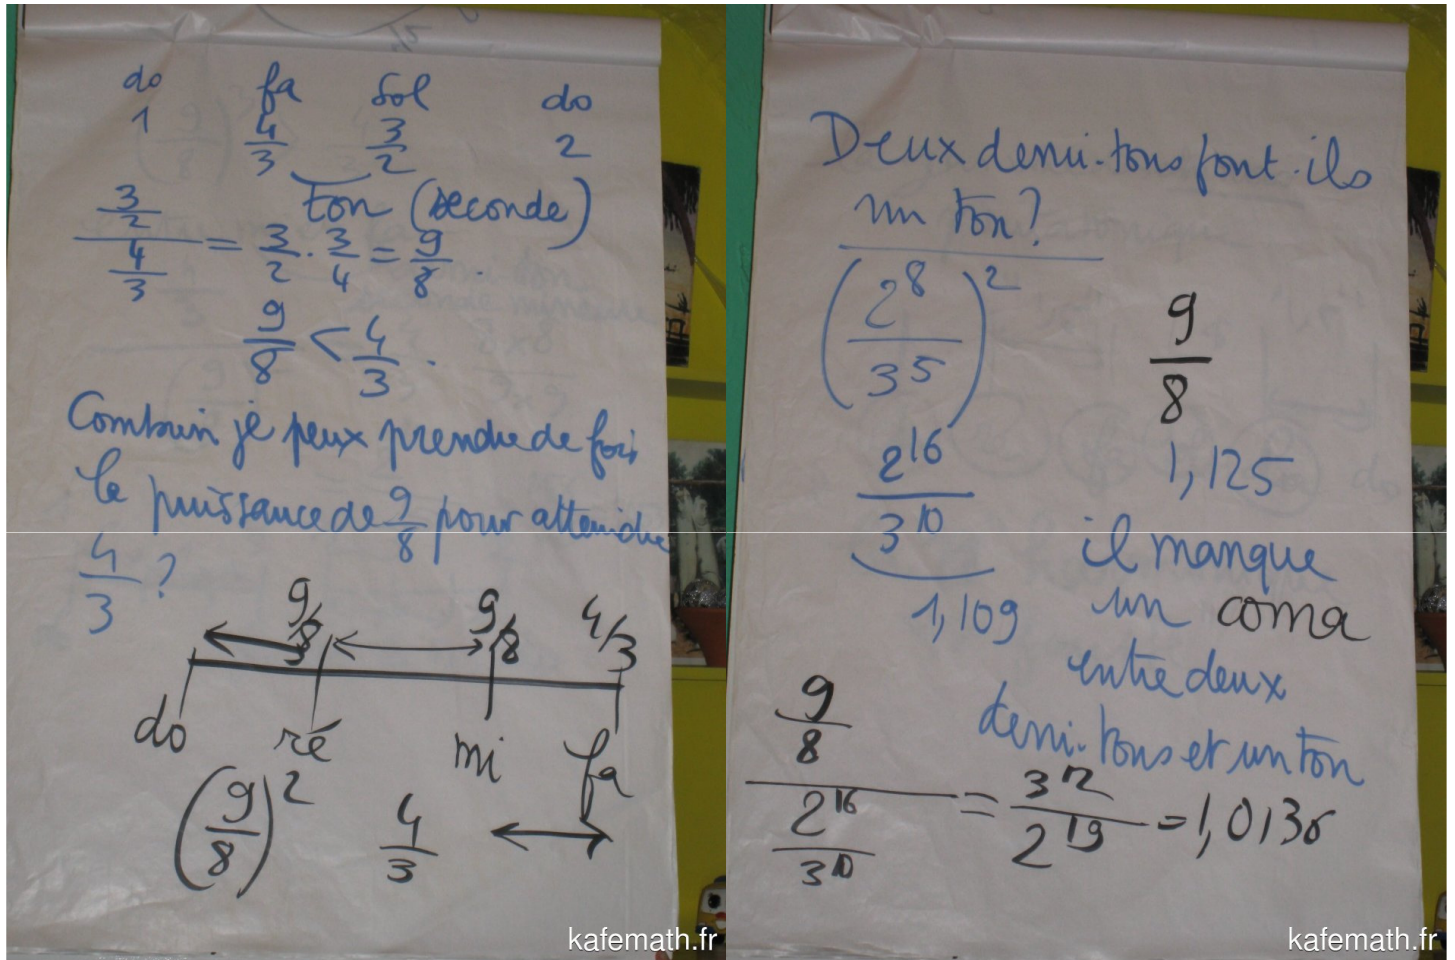 do fa sol do
1 4/3 3/2 2
ton (seconde)
(3/2)/(4/3) = 3/2 . 3/4 = 9/8 .
9/8 < 4/3 .
Combien je peux prendre de fois
la puissance de 9/8 pour atteindre
4/3 ?
9/8 9/8 4/3
do ré mi fa
(9/8)² 4/3
kafemath.fr
Deux demi-tons font-ils
un ton?
(2⁸/3⁵)² 9/8
2¹⁶/3¹⁰ 1,125
1,109
il manque
un coma
entre deux
demi-tons et un ton
(9/8)/(2¹⁶/3¹⁰) = 3¹²/2¹⁹ = 1,0136
kafemath.fr